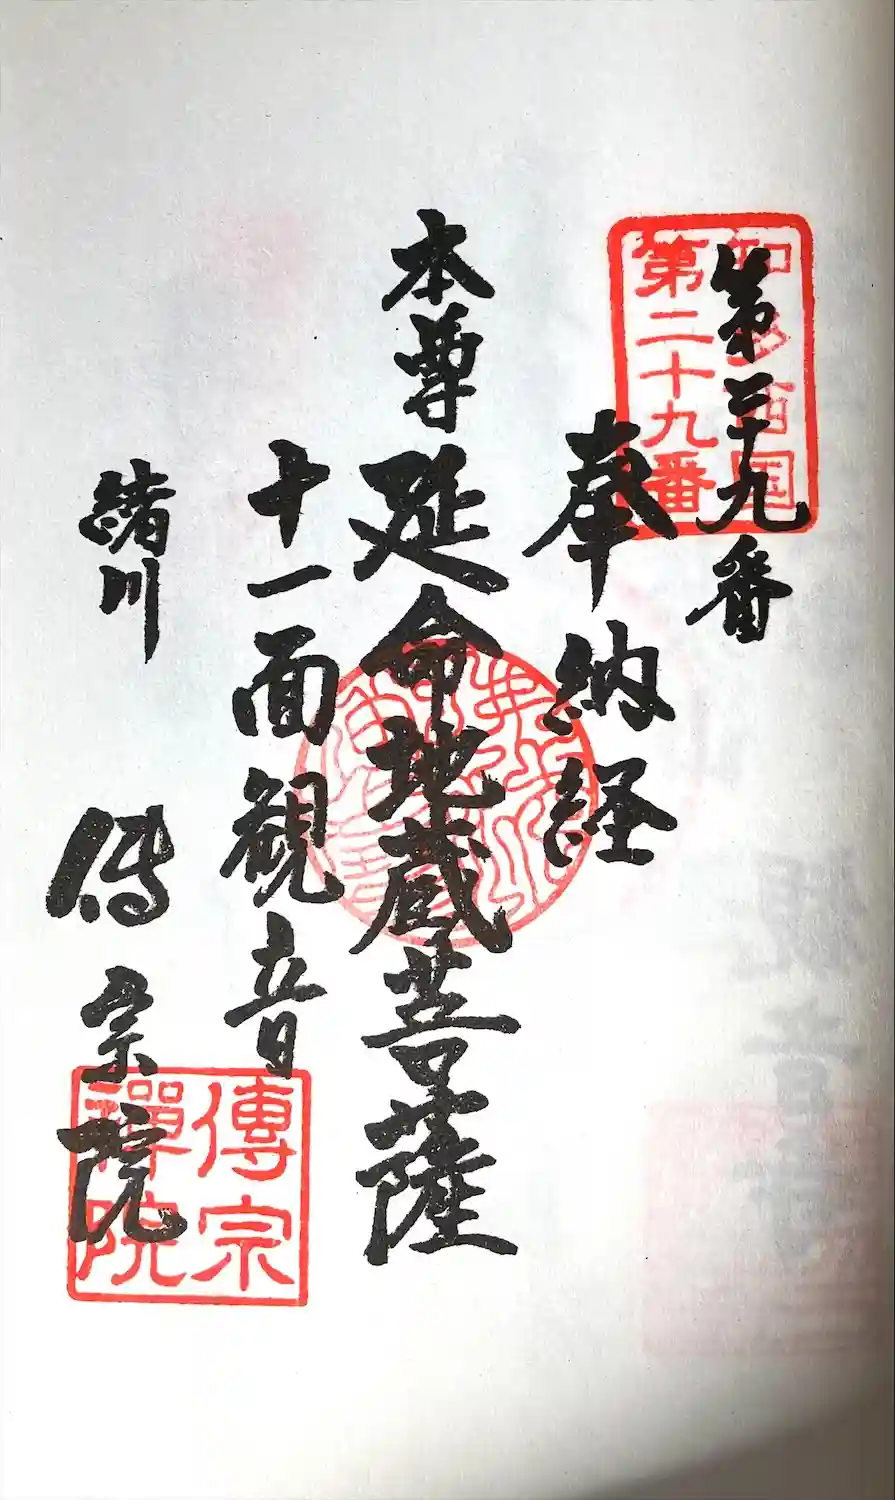 第二十九番
知多西国
第二十九番
奉納経
本尊延命地蔵菩薩
十一面観音
緒川
傳宗院
傳宗
禪院